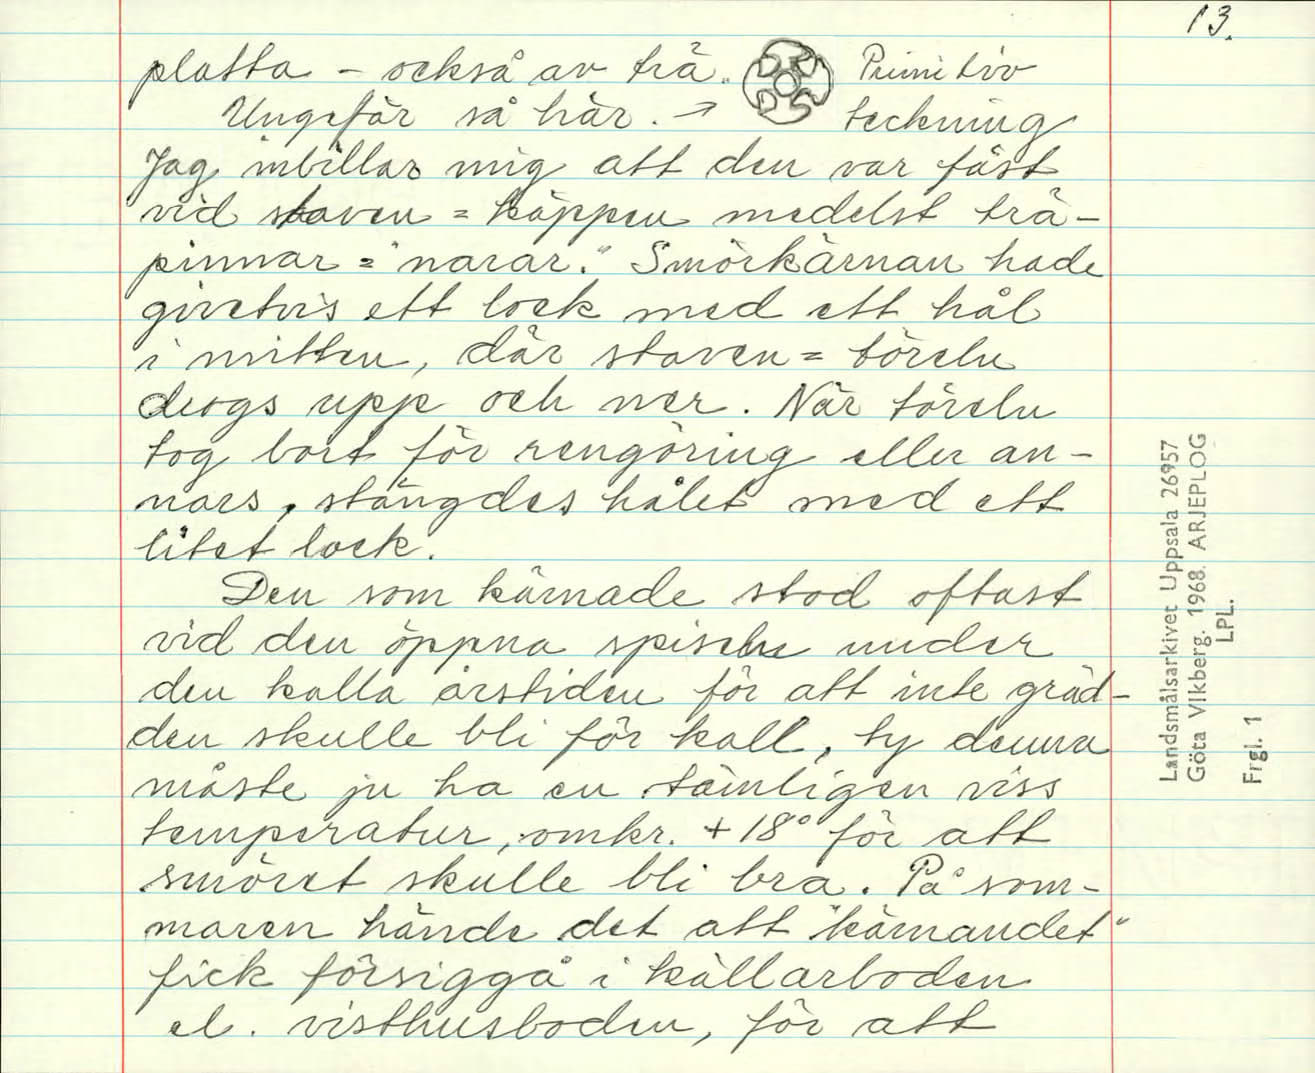 13.
platta - också av trä. Primitiv
Ungefär så här. → teckning
Jag inbillar mig att den var fäst
vid staven = käppen medelst trä-
pinnar = "narar." Smörkärnan hade
givetvis ett lock med ett hål
i mitten, där staven = töreln
drogs upp och ner. När töreln
tog bort för rengöring eller an-
nars, stängdes hålet med ett
litet lock.
Den som kärnade stod oftast
vid den öppna spiseln under
den kalla årstiden för att inte gräd-
den skulle bli för kall, ty denna
måste ju ha en tämligen viss
temperatur, omkr. + 18° för att
smöret skulle bli bra. På som-
maren hände det att "kärnandet"
fick försiggå i källarboden
el. visthusboden, för att
Landsmålsarkivet Uppsala 26957
Göta Vikberg. 1968. ARJEPLOG
LPL.
Frgl. 1